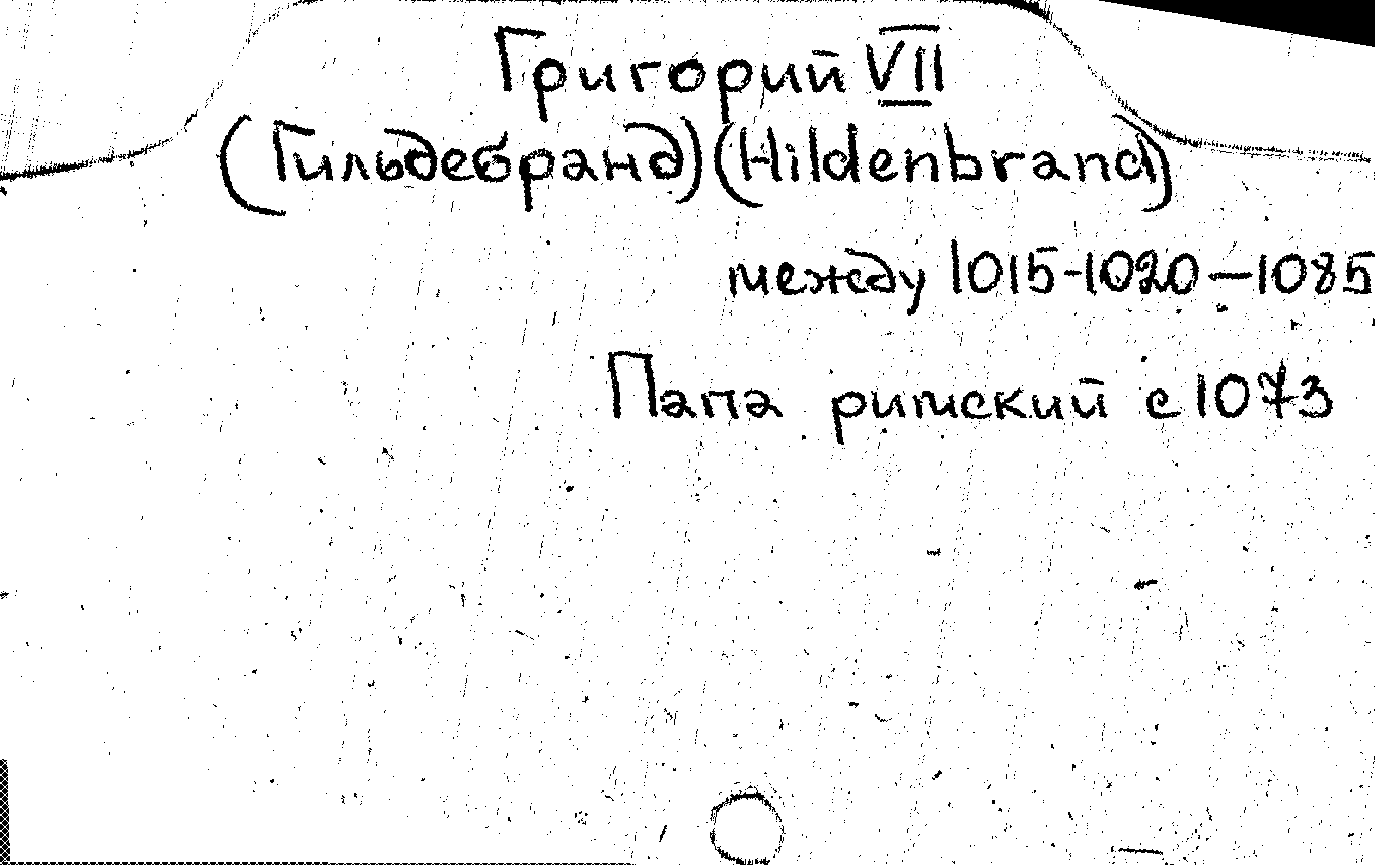 Григорий VII
(Гильдебранд) (Hildenbrand)
между 1015-1020—1085
Папа римский с 1073